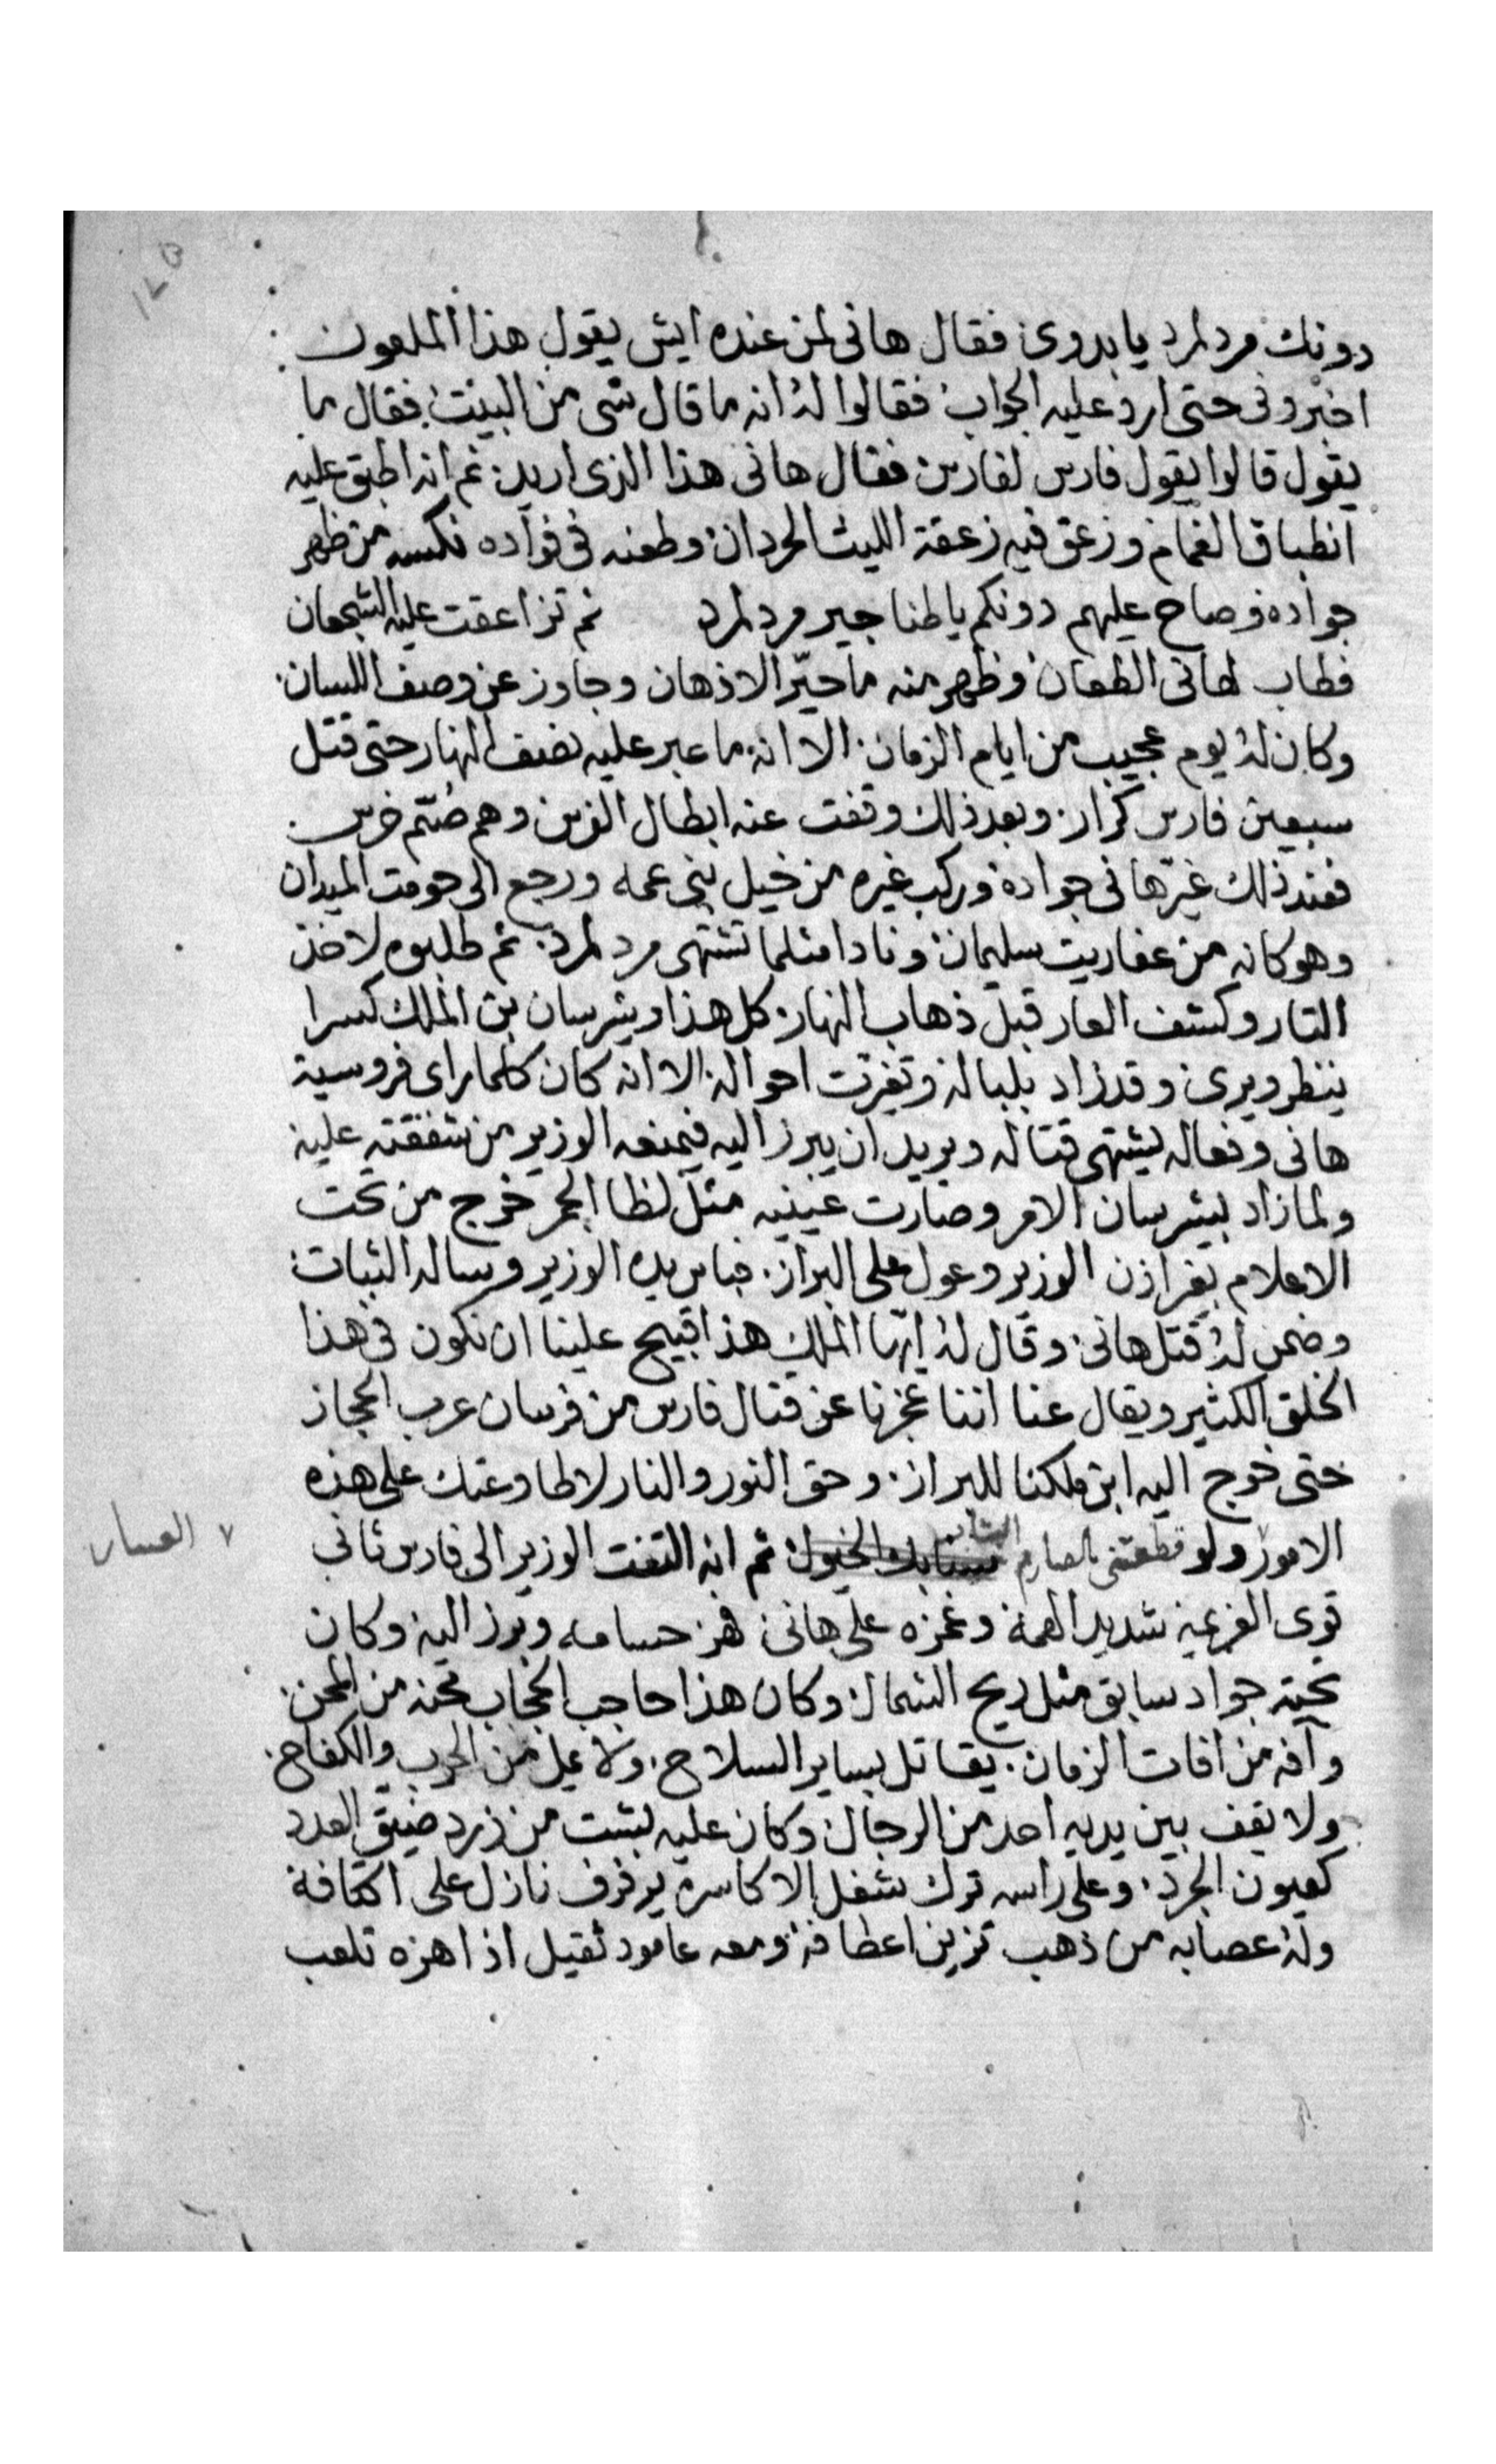 دونك مرد لمرد يا بدوى فقال هانى لمن عنده ايش يقول هذا الملعون
اخبرونى حتى ارد عليه الجواب فقالوا له انه ما قال شى من البينت فقال ما
يقول قالوا يقول فارس لفارس فقال هانى هذا الذى اريد ثم انه اطبق عليه
انطباق الغمام وزعق فيه زعقة الليث الحردان وطعنه فى فواده نكسه من ظهر
جواده وصاح عليهم دونكم يا طناجير مرد لمرد ثم تزاعقت عليه الشجعان
فطاب لهانى الطعان وظهر منه ما حيّر الاذهان وجاوز عن وصف اللسان
وكان له يوم عجيب من ايام الزمان الا انه ما عبر عليه نصف النهار حتى قتل
سبعين فارس كرار وبعد ذلك وقفت عنه ابطال الفرس وهم صُمّ خرس
فعند ذلك غيّر هانى جواده وركب غيره من خيل بنى عمه ورجع الى حومت الميدان
وهو كانه من عفاريت سليمان ونادا مثلما تشتهى مرد لمرد ثم طلبوه لاخذ
التار وكشف العار قبل ذهاب النهار كل هذا وبشرسان بن الملك كسرا
ينظر ويرى وقد زاد بلباله وتغيرت احواله الا انه كان كلما راى فروسية
هانى وفعاله يشتهى قتاله ويريد ان يبرز اليه فيمنعه الوزير من شفقته عليه
ولما زاد ببشرسان الامر وصارت عينيه مثل لظا الجمر خرج من تحت
الاعلام بغير اذن الوزير وعول على البراز فباس يده الوزير وساله الثبات
وضمن له قتل هانى وقال له ايها الملك هذا قبيح علينا ان نكون فى هذا
الخلق الكثير ويقال عنا اننا عجزنا عن قتال فارس من فرسان عرب الحجاز
حتى خرج اليه ابن ملكنا للبراز وحق النور والنار لا طاوعتك على هذه
الامور ولو قطعتنى بالصارم سنابك الخيول ثم انه التفت الوزير الى فارس ثانى
قوى العزيمه شديد الهمة وغمزه على هانى فهز حسامه وبرز اليه وكان
تحته جواد سابق مثل ريح الشمال وكان هذا حاجب الحجاب محنه من المحن
وآفه من افات الزمان يقاتل بساير السلاح ولا يمل من الحرب والكفاح
ولا يقف بين يديه احد من الرجال وكان عليه بشت من زرد ضيّق العدد
كعيون الجرد وعلى راسه ترك شغل الاكاسرة يرفرف نازل على اكتافة
وله عصابه من ذهب تزين اعطافه ومعه عامود ثقيل اذا هزه تلعب